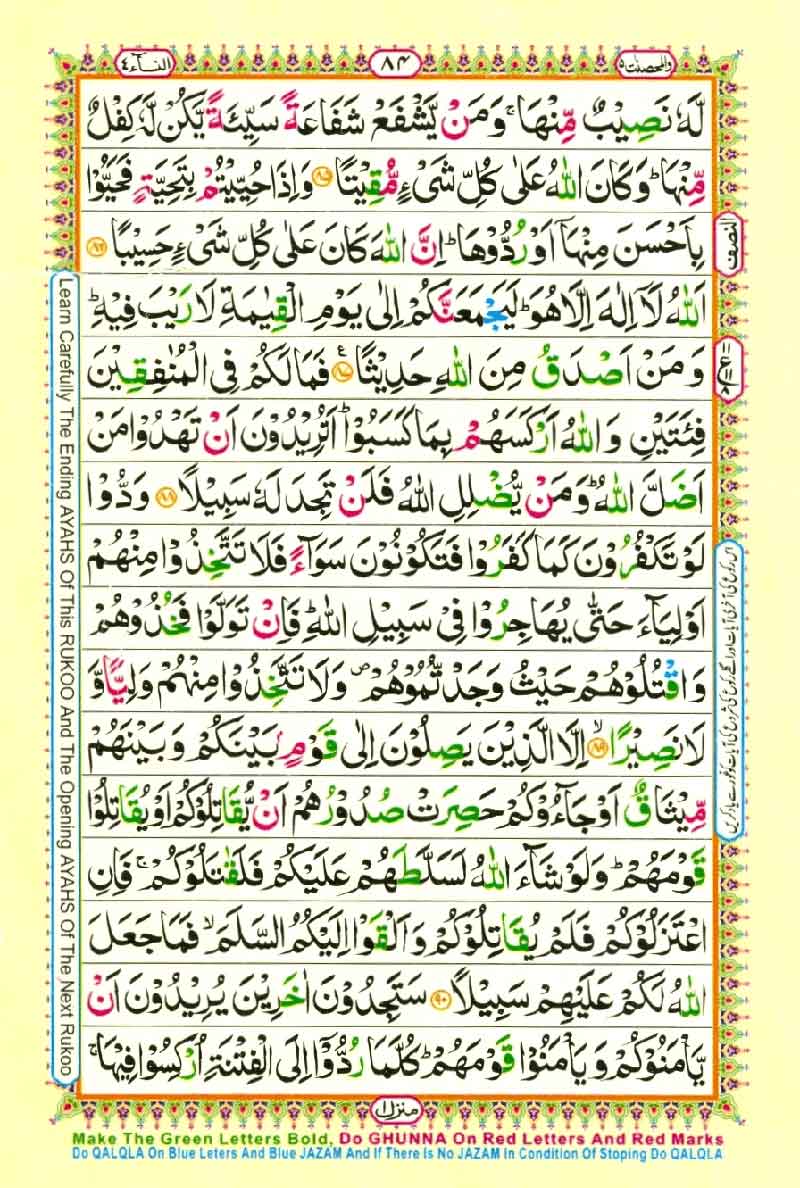 والمحصنت ۵
۸۴
النسآء ۴
لَّهٗ نَصِيْبٌ مِّنْهَا ۚ وَمَنْ يَّشْفَعْ شَفَاعَةً سَيِّئَةً يَّكُنْ لَّهٗ كِفْلٌ
مِّنْهَا ؕ وَكَانَ اللّٰهُ عَلٰى كُلِّ شَىْءٍ مُّقِيْتًا ﴿۸۵﴾ وَاِذَا حُيِّيْتُمْ بِتَحِيَّةٍ فَحَيُّوْا
بِاَحْسَنَ مِنْهَاۤ اَوْ رُدُّوْهَا ؕ اِنَّ اللّٰهَ كَانَ عَلٰى كُلِّ شَىْءٍ حَسِيْبًا ﴿۸۶﴾
اَللّٰهُ لَاۤ اِلٰهَ اِلَّا هُوَ ؕ لَيَجْمَعَنَّكُمْ اِلٰى يَوْمِ الْقِيٰمَةِ لَا رَيْبَ فِيْهِ ؕ
وَمَنْ اَصْدَقُ مِنَ اللّٰهِ حَدِيْثًا ﴿۸۷﴾ فَمَا لَكُمْ فِى الْمُنٰفِقِيْنَ
فِئَتَيْنِ وَاللّٰهُ اَرْكَسَهُمْ بِمَا كَسَبُوْا ؕ اَتُرِيْدُوْنَ اَنْ تَهْدُوْا مَنْ
اَضَلَّ اللّٰهُ ؕ وَمَنْ يُّضْلِلِ اللّٰهُ فَلَنْ تَجِدَ لَهٗ سَبِيْلًا ﴿۸۸﴾ وَدُّوْا
لَوْ تَكْفُرُوْنَ كَمَا كَفَرُوْا فَتَكُوْنُوْنَ سَوَآءً فَلَا تَتَّخِذُوْا مِنْهُمْ
اَوْلِيَآءَ حَتّٰى يُهَاجِرُوْا فِىْ سَبِيْلِ اللّٰهِ ؕ فَاِنْ تَوَلَّوْا فَخُذُوْهُمْ
وَاقْتُلُوْهُمْ حَيْثُ وَجَدْتُّمُوْهُمْ ۪ وَلَا تَتَّخِذُوْا مِنْهُمْ وَلِيًّا وَّ
لَا نَصِيْرًا ﴿۸۹﴾ ۙ اِلَّا الَّذِيْنَ يَصِلُوْنَ اِلٰى قَوْمٍۭ بَيْنَكُمْ وَبَيْنَهُمْ
مِّيْثَاقٌ اَوْ جَآءُوْكُمْ حَصِرَتْ صُدُوْرُهُمْ اَنْ يُّقَاتِلُوْكُمْ اَوْ يُقَاتِلُوْا
قَوْمَهُمْ ؕ وَلَوْ شَآءَ اللّٰهُ لَسَلَّطَهُمْ عَلَيْكُمْ فَلَقٰتَلُوْكُمْ ۚ فَاِنِ
اعْتَزَلُوْكُمْ فَلَمْ يُقَاتِلُوْكُمْ وَاَلْقَوْا اِلَيْكُمُ السَّلَمَ ۙ فَمَا جَعَلَ
اللّٰهُ لَكُمْ عَلَيْهِمْ سَبِيْلًا ﴿۹۰﴾ سَتَجِدُوْنَ اٰخَرِيْنَ يُرِيْدُوْنَ اَنْ
يَّاْمَنُوْكُمْ وَيَاْمَنُوْا قَوْمَهُمْ ؕ كُلَّمَا رُدُّوْۤا اِلَى الْفِتْنَةِ اُرْكِسُوْا فِيْهَا ۚ
النصف
Learn Carefully The Ending AYAHS Of This RUKOO And The Opening AYAHS Of The Next Rukoo
منزل ۱
Make The Green Letters Bold, Do GHUNNA On Red Letters And Red Marks
Do QALQLA On Blue Leters And Blue JAZAM And If There Is No JAZAM In Condition Of Stoping Do QALQLA